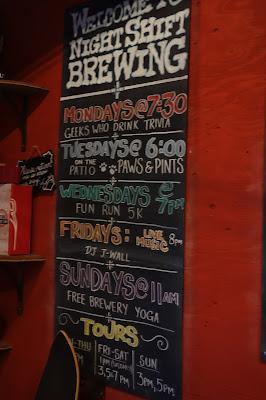 WELCOME TO
NIGHT SHIFT
BREWING
MONDAYS @ 7:30
GEEKS WHO DRINK TRIVIA
TUESDAYS @ 6:00
ON THE PATIO PAWS & PINTS
WEDNESDAYS @ 7PM
FUN RUN 5K
FRIDAYS: LIVE MUSIC 8pm
DJ J-WALL
SUNDAYS @ 11AM
FREE BREWERY YOGA
TOURS
THU
FRI-SAT
SUN
3,5+7PM
3PM, 5PM